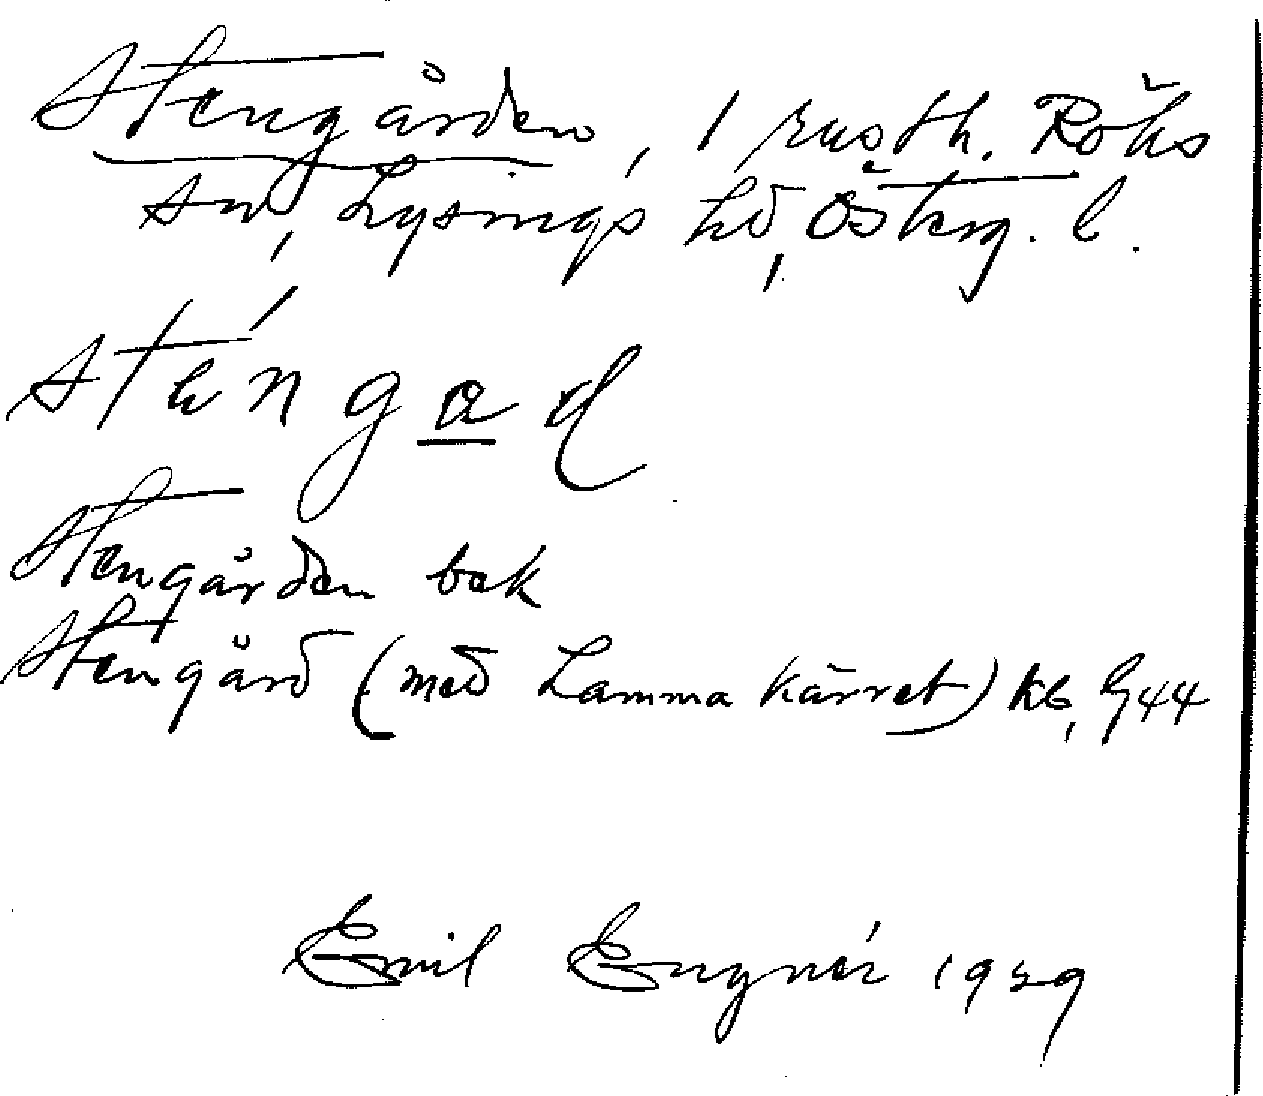 Stengården, 1 rusth. Röks
sn, Lysings hd, Österg. l.
sténgad
Stengården bek
Stengård (med Lamma kärret) kb, G44
Emil Engnér 1929